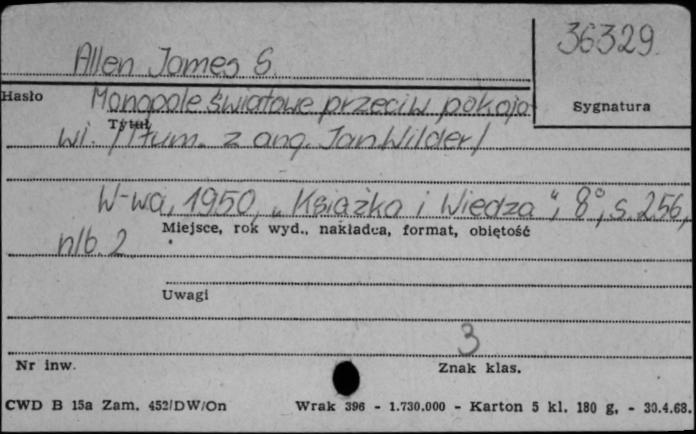 36329.
Allen James S.
Hasło
Sygnatura
Monopole światowe przeciw pokojo
Tytuł
wi. /Tłum. z ang. Jan Wilder/
W-wa, 1950, „Książka i Wiedza", 8°, s. 256,
Miejsce, rok wyd., nakładca, format, obiętość
nlb. 2.
Uwagi
3
Nr inw.
Znak klas.
CWD B 15a Zam. 452/DW/On Wrak 396 - 1.730.000 - Karton 5 kl. 180 g. - 30.4.68.